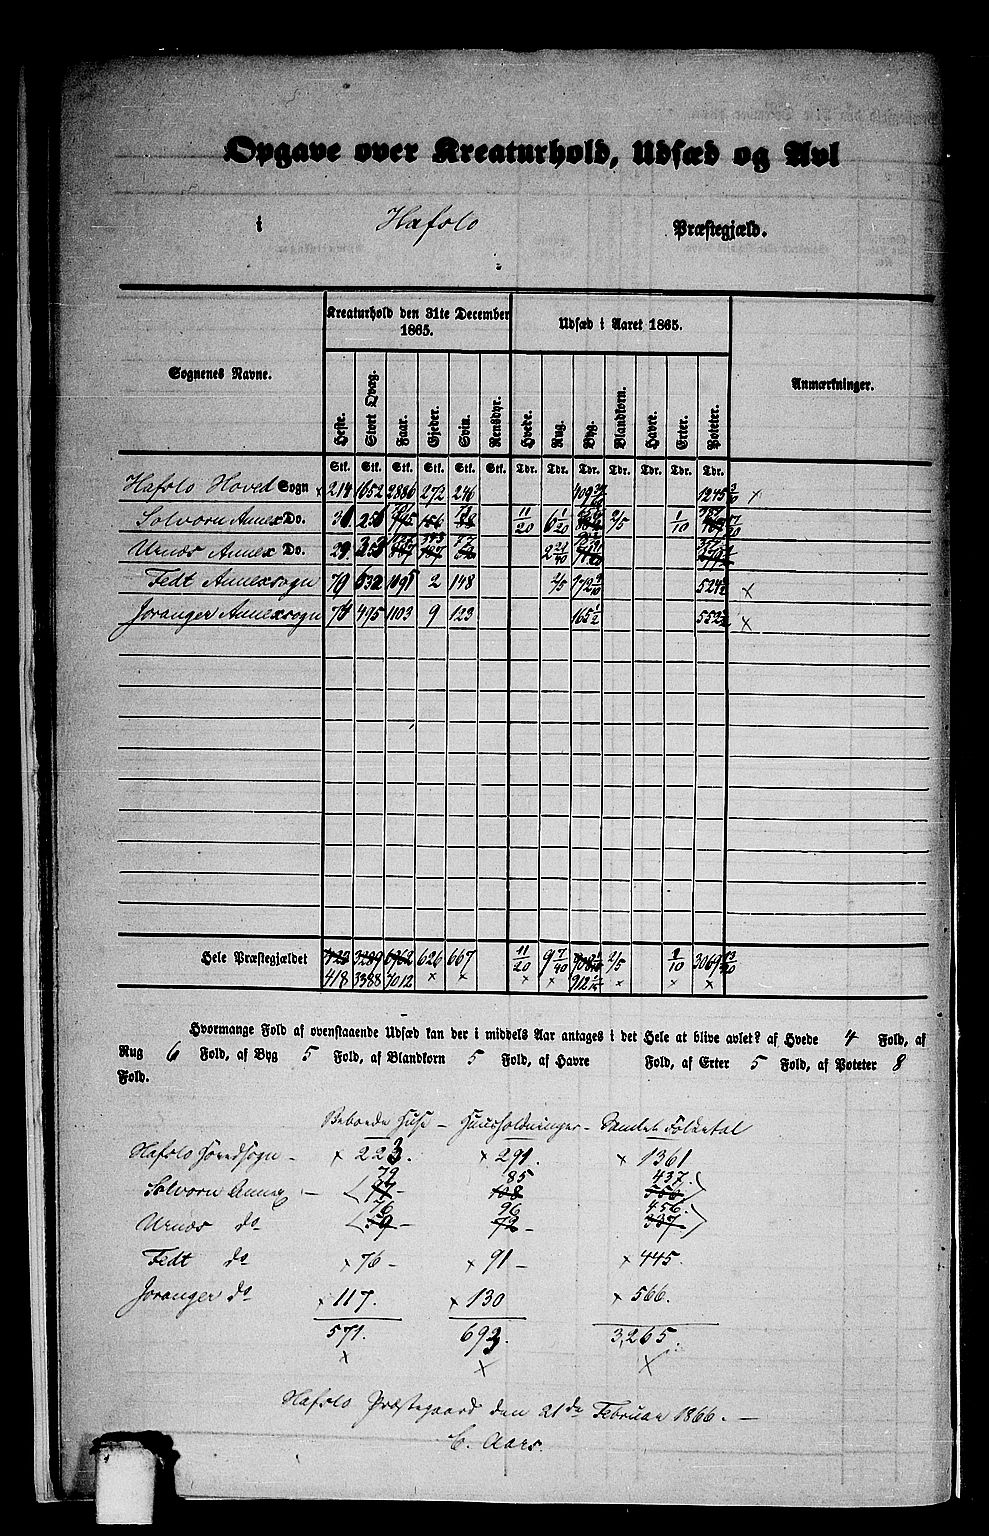 Opgave over Kreaturhold, Udsæd og Avl
i Hafslo Præstegjæld.
Sognenes Navne. Kreaturhold den 31te December 1865. Udsæd i Aaret 1865. Anmærkninger.
Heste. Stort Qvæg. Faar. Gjeder. Svin. Rensdyr. Hvede. Rug. Byg. Blandkorn. Havre. Erter. Poteter.
Stk. Stk. Stk. Stk. Stk. Stk. Tdr. Tdr. Tdr. Tdr. Tdr. Tdr. Tdr.
Hafslo Hoved Sogn x 214 1652 2886 272 246 409 1245 x
Solvorn Annex Do. 11/20 6 1/20 2/5 1/10
Urnæs Annex Do. 29 2 21/40
Fedt Annexsogn 79 632 1691 2 148 2/5 172 3/10 524 x
Joranger Annexsogn 71 495 1103 9 123 165 1/2 552 x
Hele Præstegjældet 423 3289 6962 626 667 11/20 9 7/40 2/5 2/10 3069
418 3388 7012 x x x x 912 x x x
Hvormange Fold af ovenstaaende Udsæd kan der i middels Aar antages i det Hele at blive avlet? af Hvede 4 Fold, af
Rug 6 Fold, af Byg 5 Fold, af Blandkorn 5 Fold, af Havre Fold, af Erter 5 Fold, af Poteter 8
Fold.
Beboede Huse – Huusholdninger – Samlet Folketal
Hafslo Hovedsogn – x 223. x 291. x 1361
79 85 437.
Solvorn Annex – 77 – 108 550
76 96 456.
Urnæs do 59 – 72 – 337
Fedt do x 76 – x 91 – x 445.
Joranger do x 117. x 130 x 566.
571. 693. 3,265.
x x x
Hafslo Præstegaard den 21de Februar 1866. –
C. Aars.